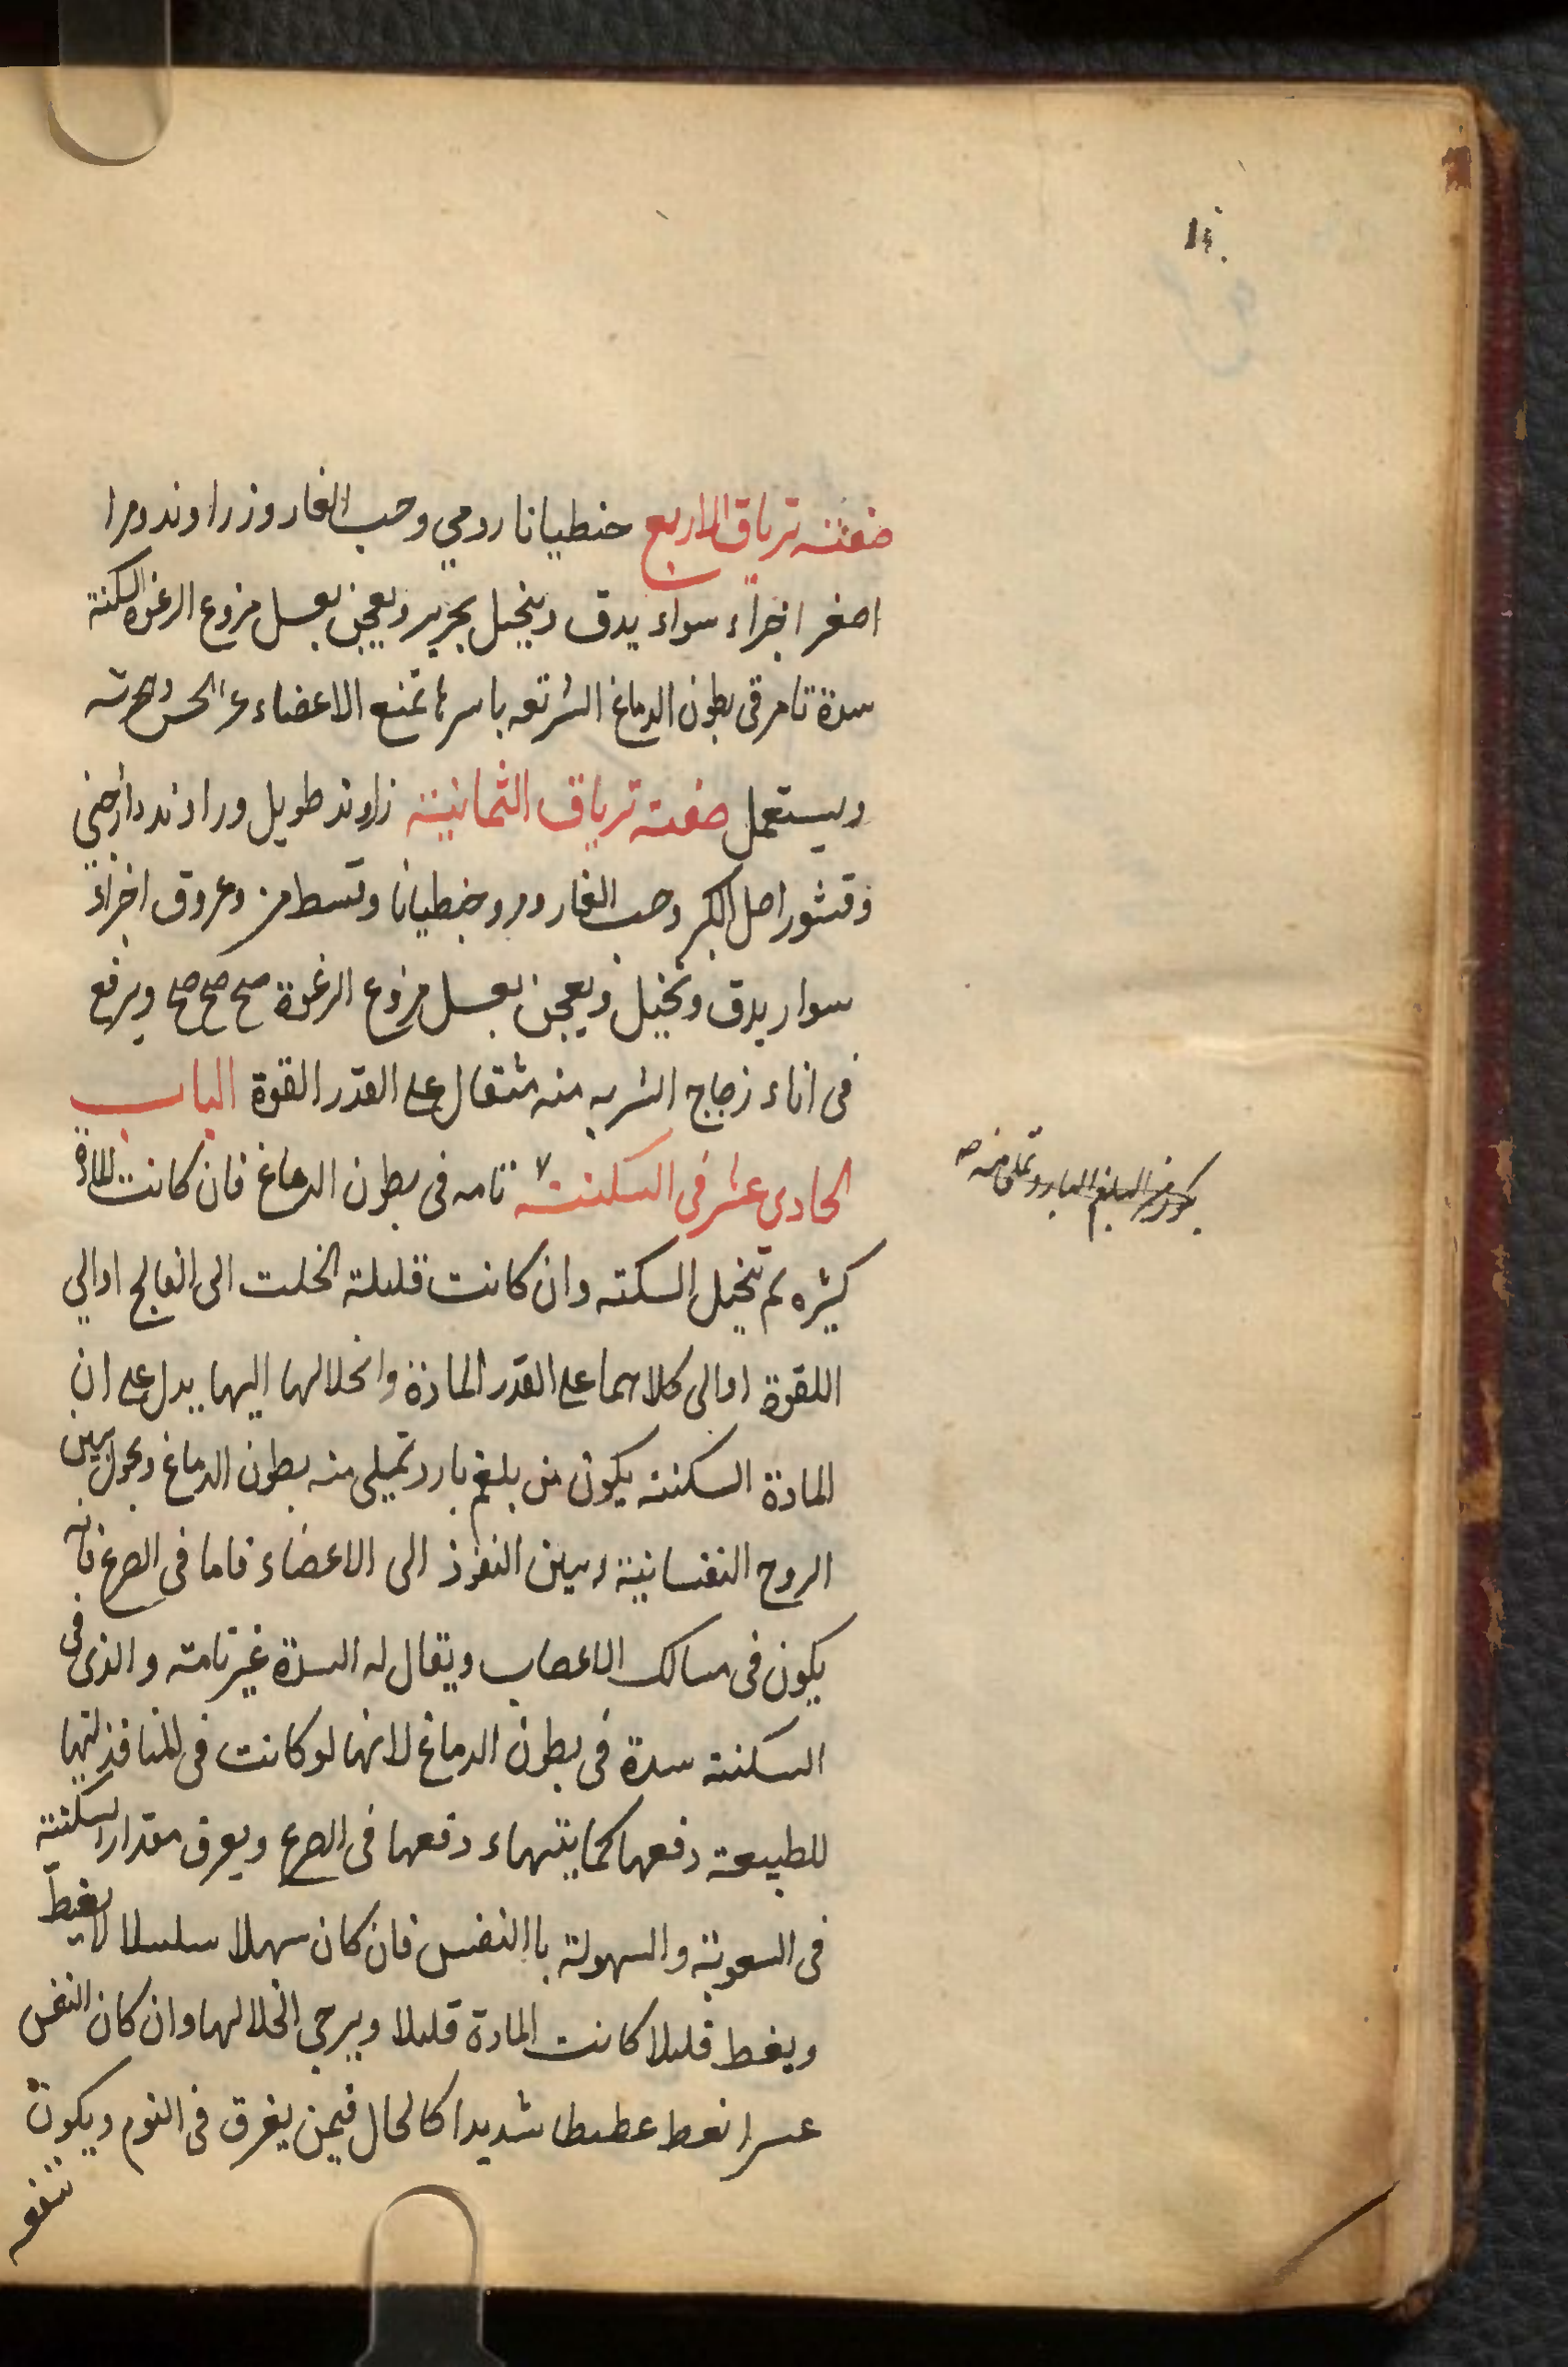 صفته ترياق الاربع حنطيانا رومي وحب الغار وزراوند ومرا
اصغر اجزاء سواء يدق وينخيل بحرير ويعجن بعسل مزوع الرغوة السكتة
سدة تامر فى بطون الدماغ الشرتعه باسرها تمنع الاعضاء عن الحس
ويستعمل صفته ترياق الثمانية زراوند طويل وراوند دارصني
وقشور اصل الكبر وحب الغار ومر وجنطيانا وقسط مر وعروق اجزاء
سوار يدق وتخيل ويعجن بعسل مزوع الرغوة صح صح صح ويرفع
فى اناء زجاج الشربه منه مثقال على القدر القوة الباب
الحادي عشر فى السكتته تامه فى بطون الدماغ فان كانت المادة
كثيره لم تخيل السكته وان كانت قليلة انحلت الى الفالج اوالي
اللقوة اوالى كلاهما على القدر المادة وانحلالها اليهما يدل على ان
المادة السكتته يكون من بلغم بارد تميلى منه بطون الدماغ ويحول بين
الروح النفسانية وبين النفوذ الى الاعضاء فاما فى الصرع فانه
يكون فى مسالك الاعصاب ويقال له السدة غير تامته والذى فى
السكتته سدة فى بطون الدماغ لانها لو كانت فى المنافذ لتهيا
للطبيعة دفعها كما يتهياء دفعها فى الصرع ويعرف مقدار السكتته
فى السعوبة والسهولة باالنفس فان كان سهلا سلسلا لا يغيط
ويغط قليلا كانت المادة قليلا ويرجي انحلالها وان كان النفس
عسرا نعط عطيطا شديدا كالحال فيمن يغرق فى النوم ويكون
تنفه
يكون من البلغم البارد وتملى منه صه